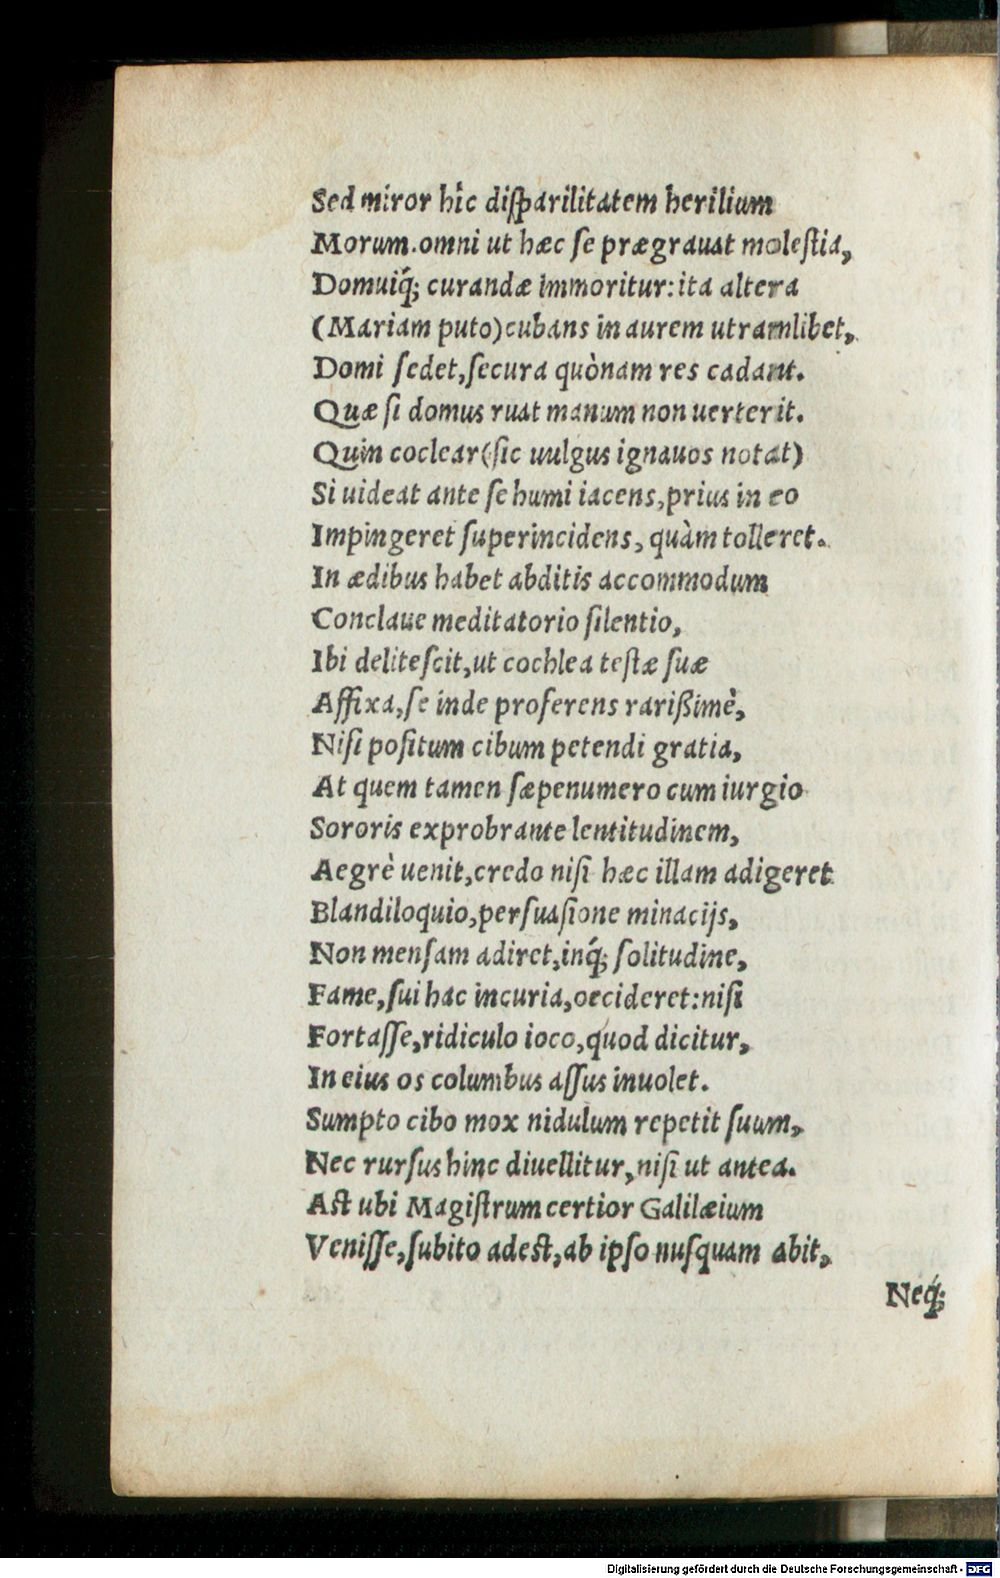 Sed miror hîc diſparilitatem herilium
Morum.omni ut hæc ſe prægrauat moleſtia,
Domuiq́; curandæ immoritur:ita altera
(Mariam puto)cubans in aurem utramlibet,
Domi ſedet,ſecura quònam res cadant.
Quæ ſi domus ruat manum non uerterit.
Quin coclear(ſic uulgus ignauos notat)
Si uideat ante ſe humi iacens,prius in eo
Impingeret ſuperincidens, quàm tolleret.
In ædibus habet abditis accommodum
Conclaue meditatorio ſilentio,
Ibi deliteſcit,ut cochlea teſtæ ſuæ
Affixa,ſe inde proferens rarißimè,
Niſi poſitum cibum petendi gratia,
At quem tamen ſæpenumero cum iurgio
Sororis exprobrante lentitudinem,
Aegrè uenit,credo niſi hæc illam adigeret
Blandiloquio,perſuaſione minacijs,
Non menſam adiret,inq́; ſolitudine,
Fame,ſui hac incuria,occideret:niſi
Fortaſſe,ridiculo ioco,quod dicitur,
In eius os columbus aſſus inuolet.
Sumpto cibo mox nidulum repetit ſuum,
Nec rurſus hinc diuellitur,niſi ut antea.
Aſt ubi Magiſtrum certior Galilæium
Veniſſe,ſubito adeſt,ab ipſo nuſquam abit,
Neq́;
Digitalisierung gefördert durch die Deutsche Forschungsgemeinschaft - DFG